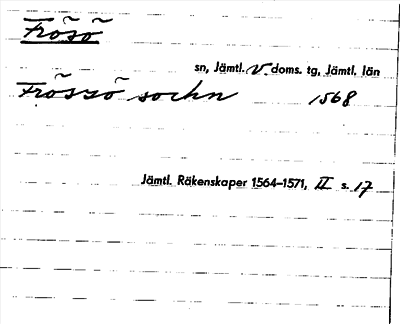 Frösö
sn, Jämtl. V. doms. tg, Jämtl. län
Frõszõ sochn 1568
Jämtl. Räkenskaper 1564–1571, II s. 17